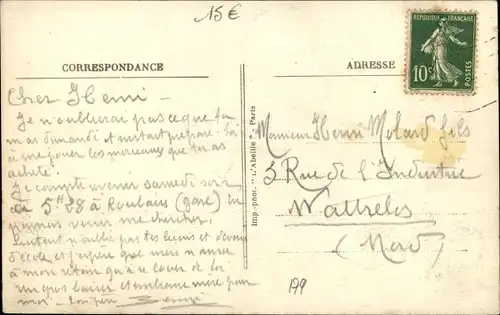 15€
CORRESPONDANCE
ADRESSE
RÉPUBLIQUE FRANÇAISE
10c
POSTES
Imp.-phot. "L'Abeille", Paris
Cher Henri -
Je n'oublierai pas ce que tu
m'as demandé et surtout prépare-toi
à me jouer les morceaux que tu as
acheté.
Je compte venir samedi soir
5H28 à Roubaix (gare)
pourrais venir me chercher.
Surtout n'oublie pas tes leçons et devoirs
d'école et j'espère que
à mon retour
un gros baiser et embrasse mère pour
moi - Ton père
Monsieur Henri Molard fils
3 Rue de l'Industrie
Wattrelos
(Nord)
199